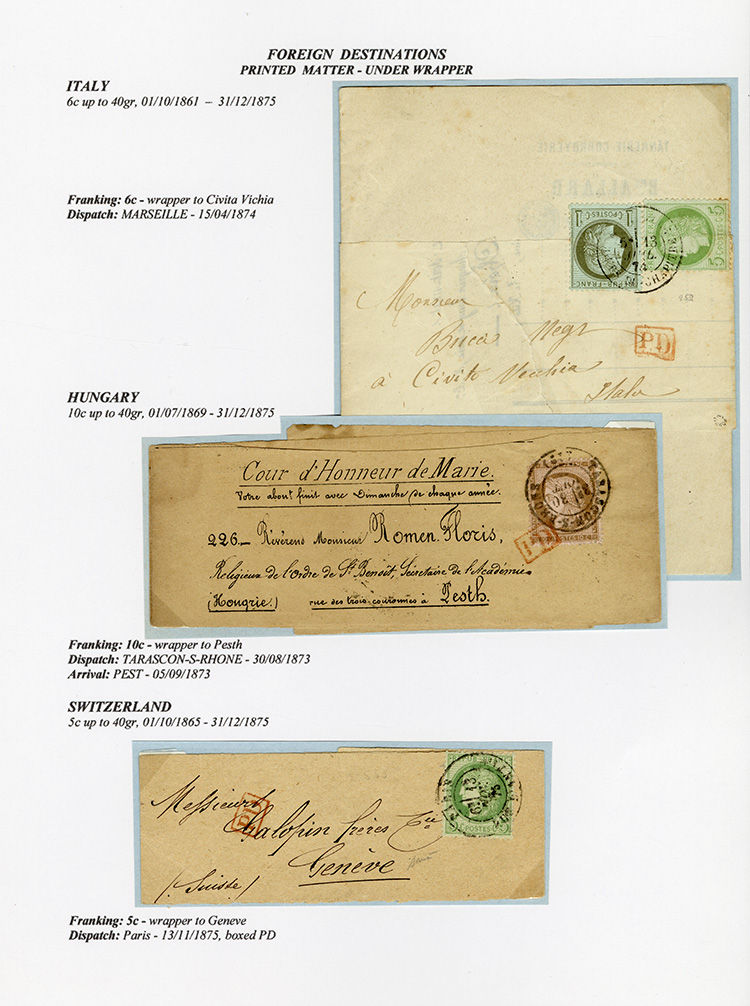 FOREIGN DESTINATIONS
PRINTED MATTER - UNDER WRAPPER
ITALY
6c up to 40gr, 01/10/1861 - 31/12/1875
Franking: 6c - wrapper to Civita Vichia
Dispatch: MARSEILLE - 15/04/1874
TANNERIE CORROYERIE
POSTES
Monsieur
Bucca Negr
à Civita Vecchia
Italo
PD
HUNGARY
10c up to 40gr, 01/07/1869 - 31/12/1875
Cour d'Honneur de Marie.
Votre abont finit avec Dimanche de chaque année.
226_ Révérens Monsieur Romen Floris,
Religieux de l'Ordre de St Benoit, Sécretaire de l'Académie
(Hongrie.) rue des trois couronnes à Pesth.
TARASCON-S-RHONE
Franking: 10c - wrapper to Pesth
Dispatch: TARASCON-S-RHONE - 30/08/1873
Arrival: PEST - 05/09/1873
SWITZERLAND
5c up to 40gr, 01/10/1865 - 31/12/1875
Messieurs
PD
Chalopin frères Cie
Genève
(Suisse)
PARIS
POSTES
Franking: 5c - wrapper to Geneve
Dispatch: Paris - 13/11/1875, boxed PD